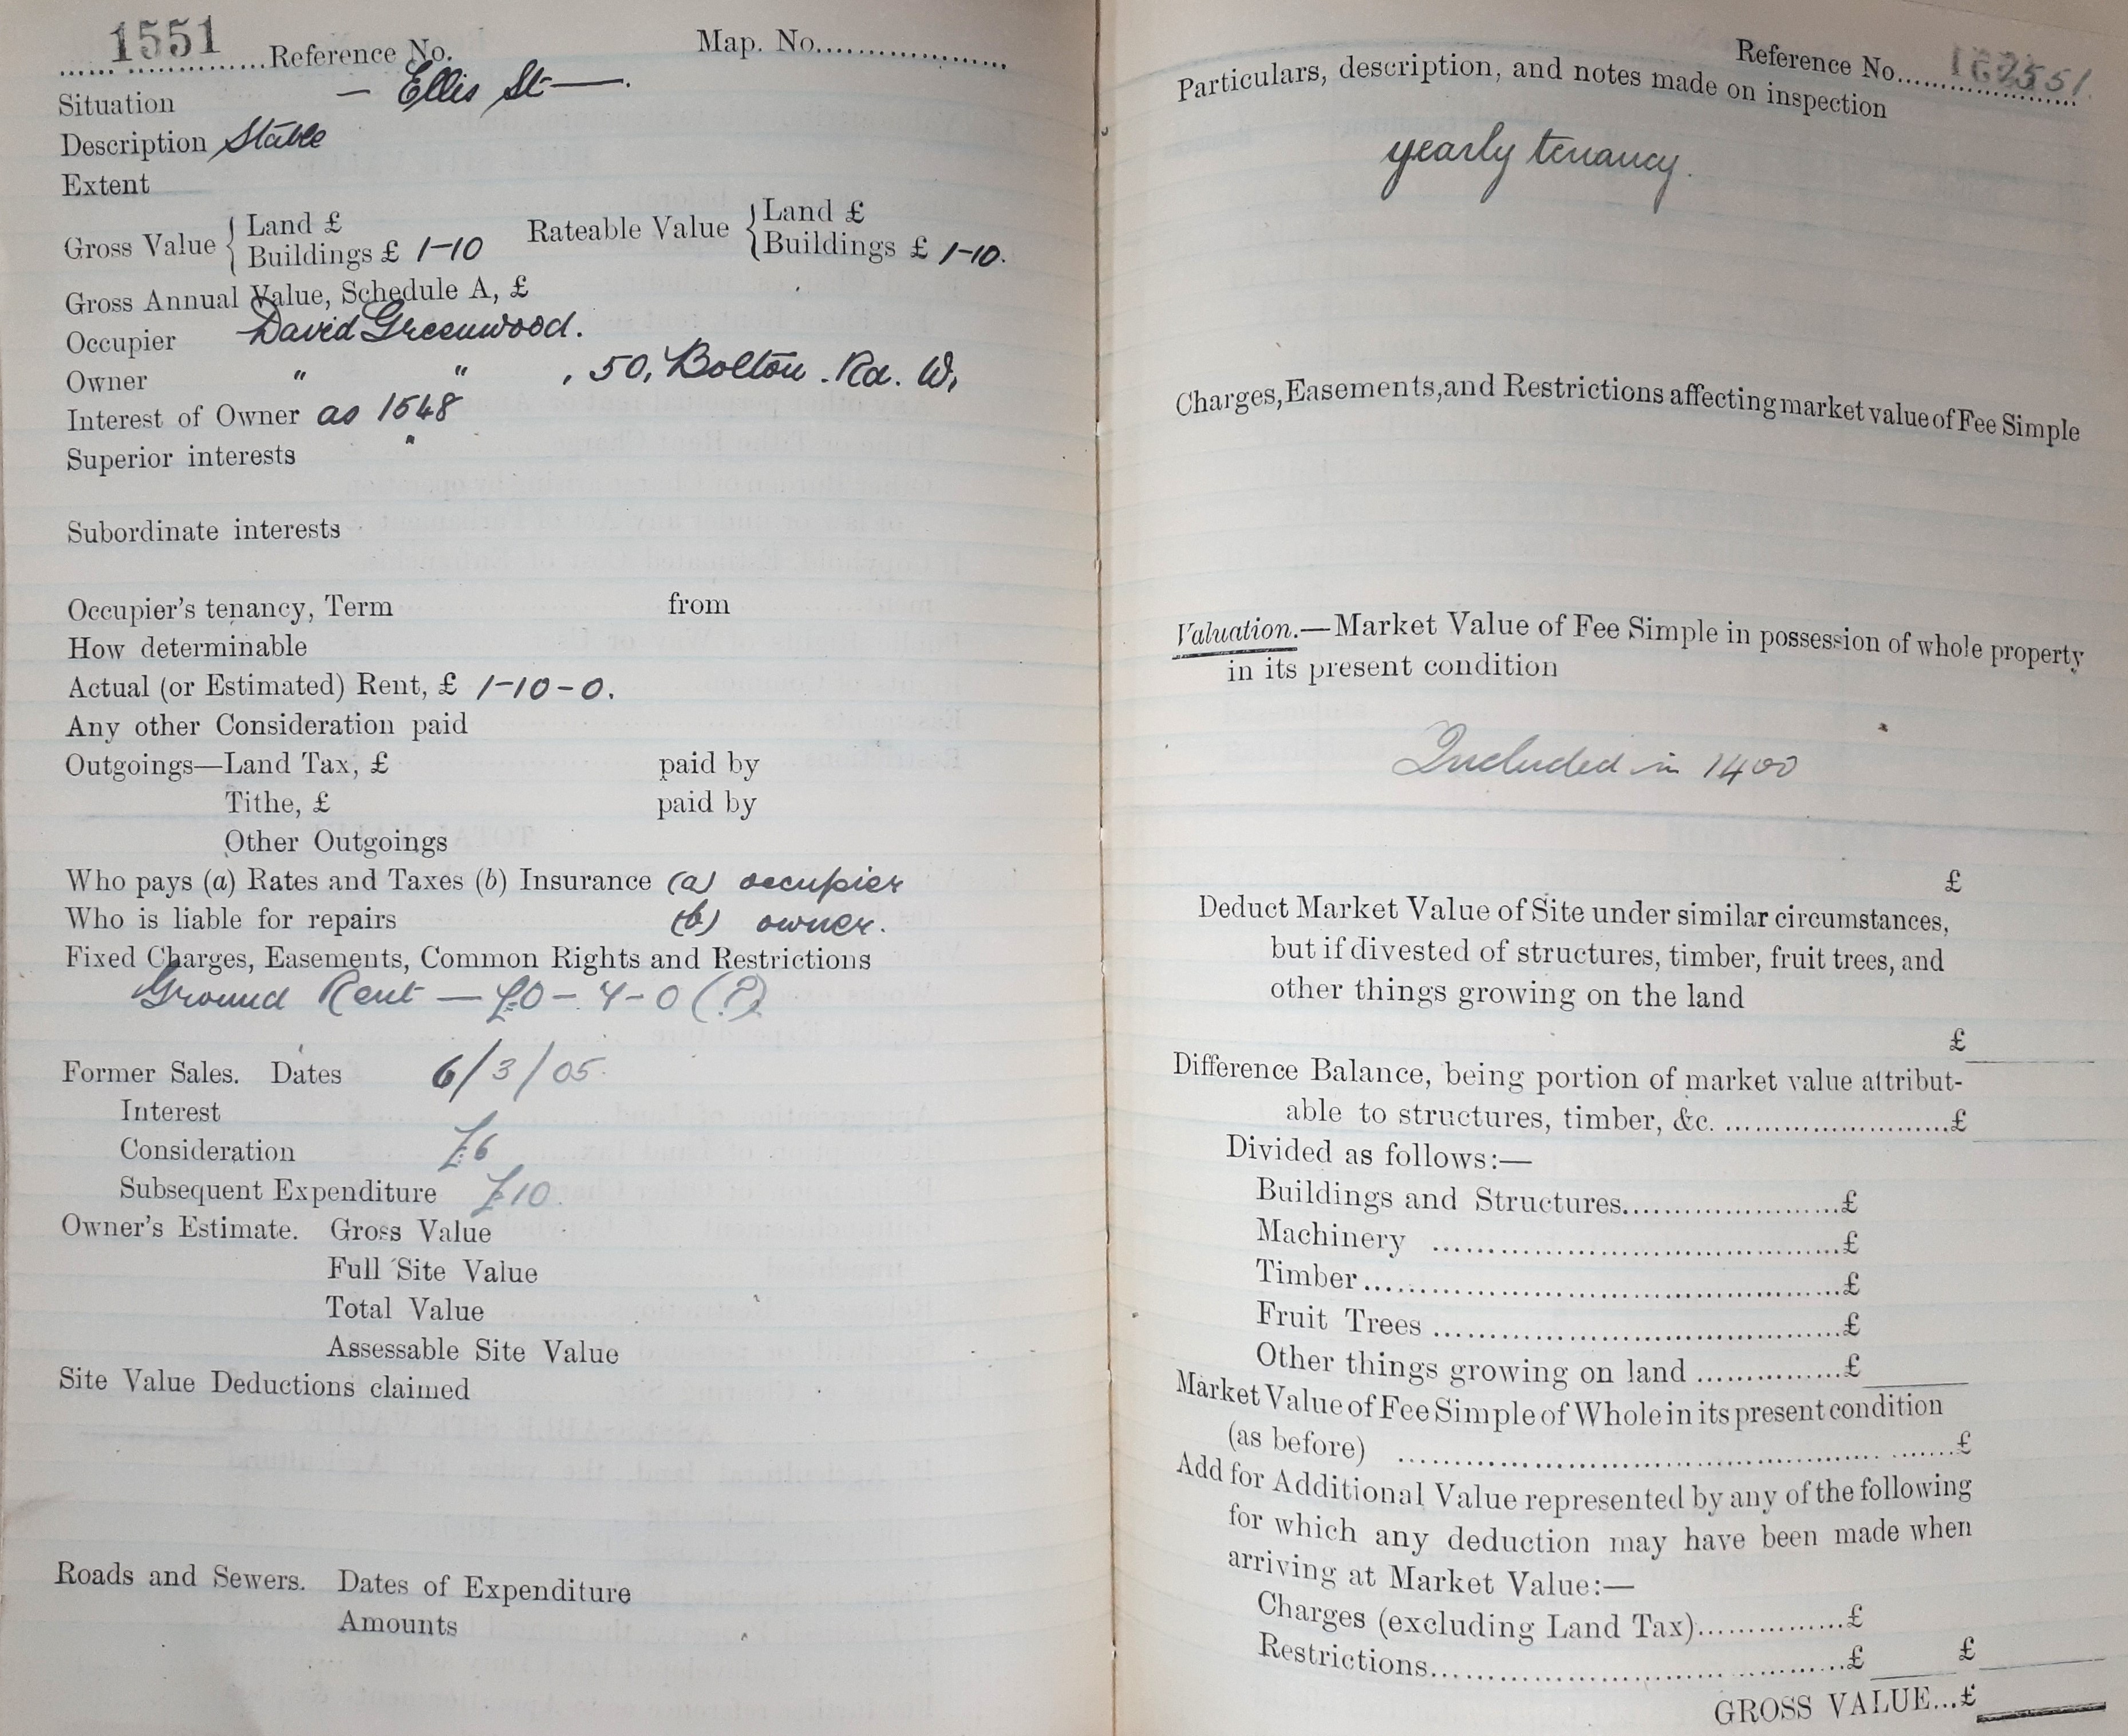 1551 Reference No. Map. No.
Situation — Ellis St —.
Description Stable
Extent
Gross Value { Land £ Rateable Value { Land £
Buildings £ 1-10 Buildings £ 1-10.
Gross Annual Value, Schedule A, £
Occupier David Greenwood.
Owner " " , 50, Bolton. Rd. W,
Interest of Owner as 1548
Superior interests "
Subordinate interests
Occupier's tenancy, Term from
How determinable
Actual (or Estimated) Rent, £ 1-10-0.
Any other Consideration paid
Outgoings—Land Tax, £ paid by
Tithe, £ paid by
Other Outgoings
Who pays (a) Rates and Taxes (b) Insurance (a) occupier
Who is liable for repairs (b) owner.
Fixed Charges, Easements, Common Rights and Restrictions
Ground Rent — £0-4-0 (?)
Former Sales. Dates 6/3/05.
Interest
Consideration £6
Subsequent Expenditure £10.
Owner's Estimate. Gross Value
Full Site Value
Total Value
Assessable Site Value
Site Value Deductions claimed
Roads and Sewers. Dates of Expenditure
Amounts
Reference No.
Particulars, description, and notes made on inspection
yearly tenancy.
Charges, Easements, and Restrictions affecting market value of Fee Simple
Valuation.—Market Value of Fee Simple in possession of whole property
in its present condition
Included in 1400
£
Deduct Market Value of Site under similar circumstances,
but if divested of structures, timber, fruit trees, and
other things growing on the land
£
Difference Balance, being portion of market value attribut-
able to structures, timber, &c. £
Divided as follows:—
Buildings and Structures £
Machinery £
Timber £
Fruit Trees £
Other things growing on land £
Market Value of Fee Simple of Whole in its present condition
(as before) £
Add for Additional Value represented by any of the following
for which any deduction may have been made when
arriving at Market Value:—
Charges (excluding Land Tax) £
Restrictions £ £
GROSS VALUE...£